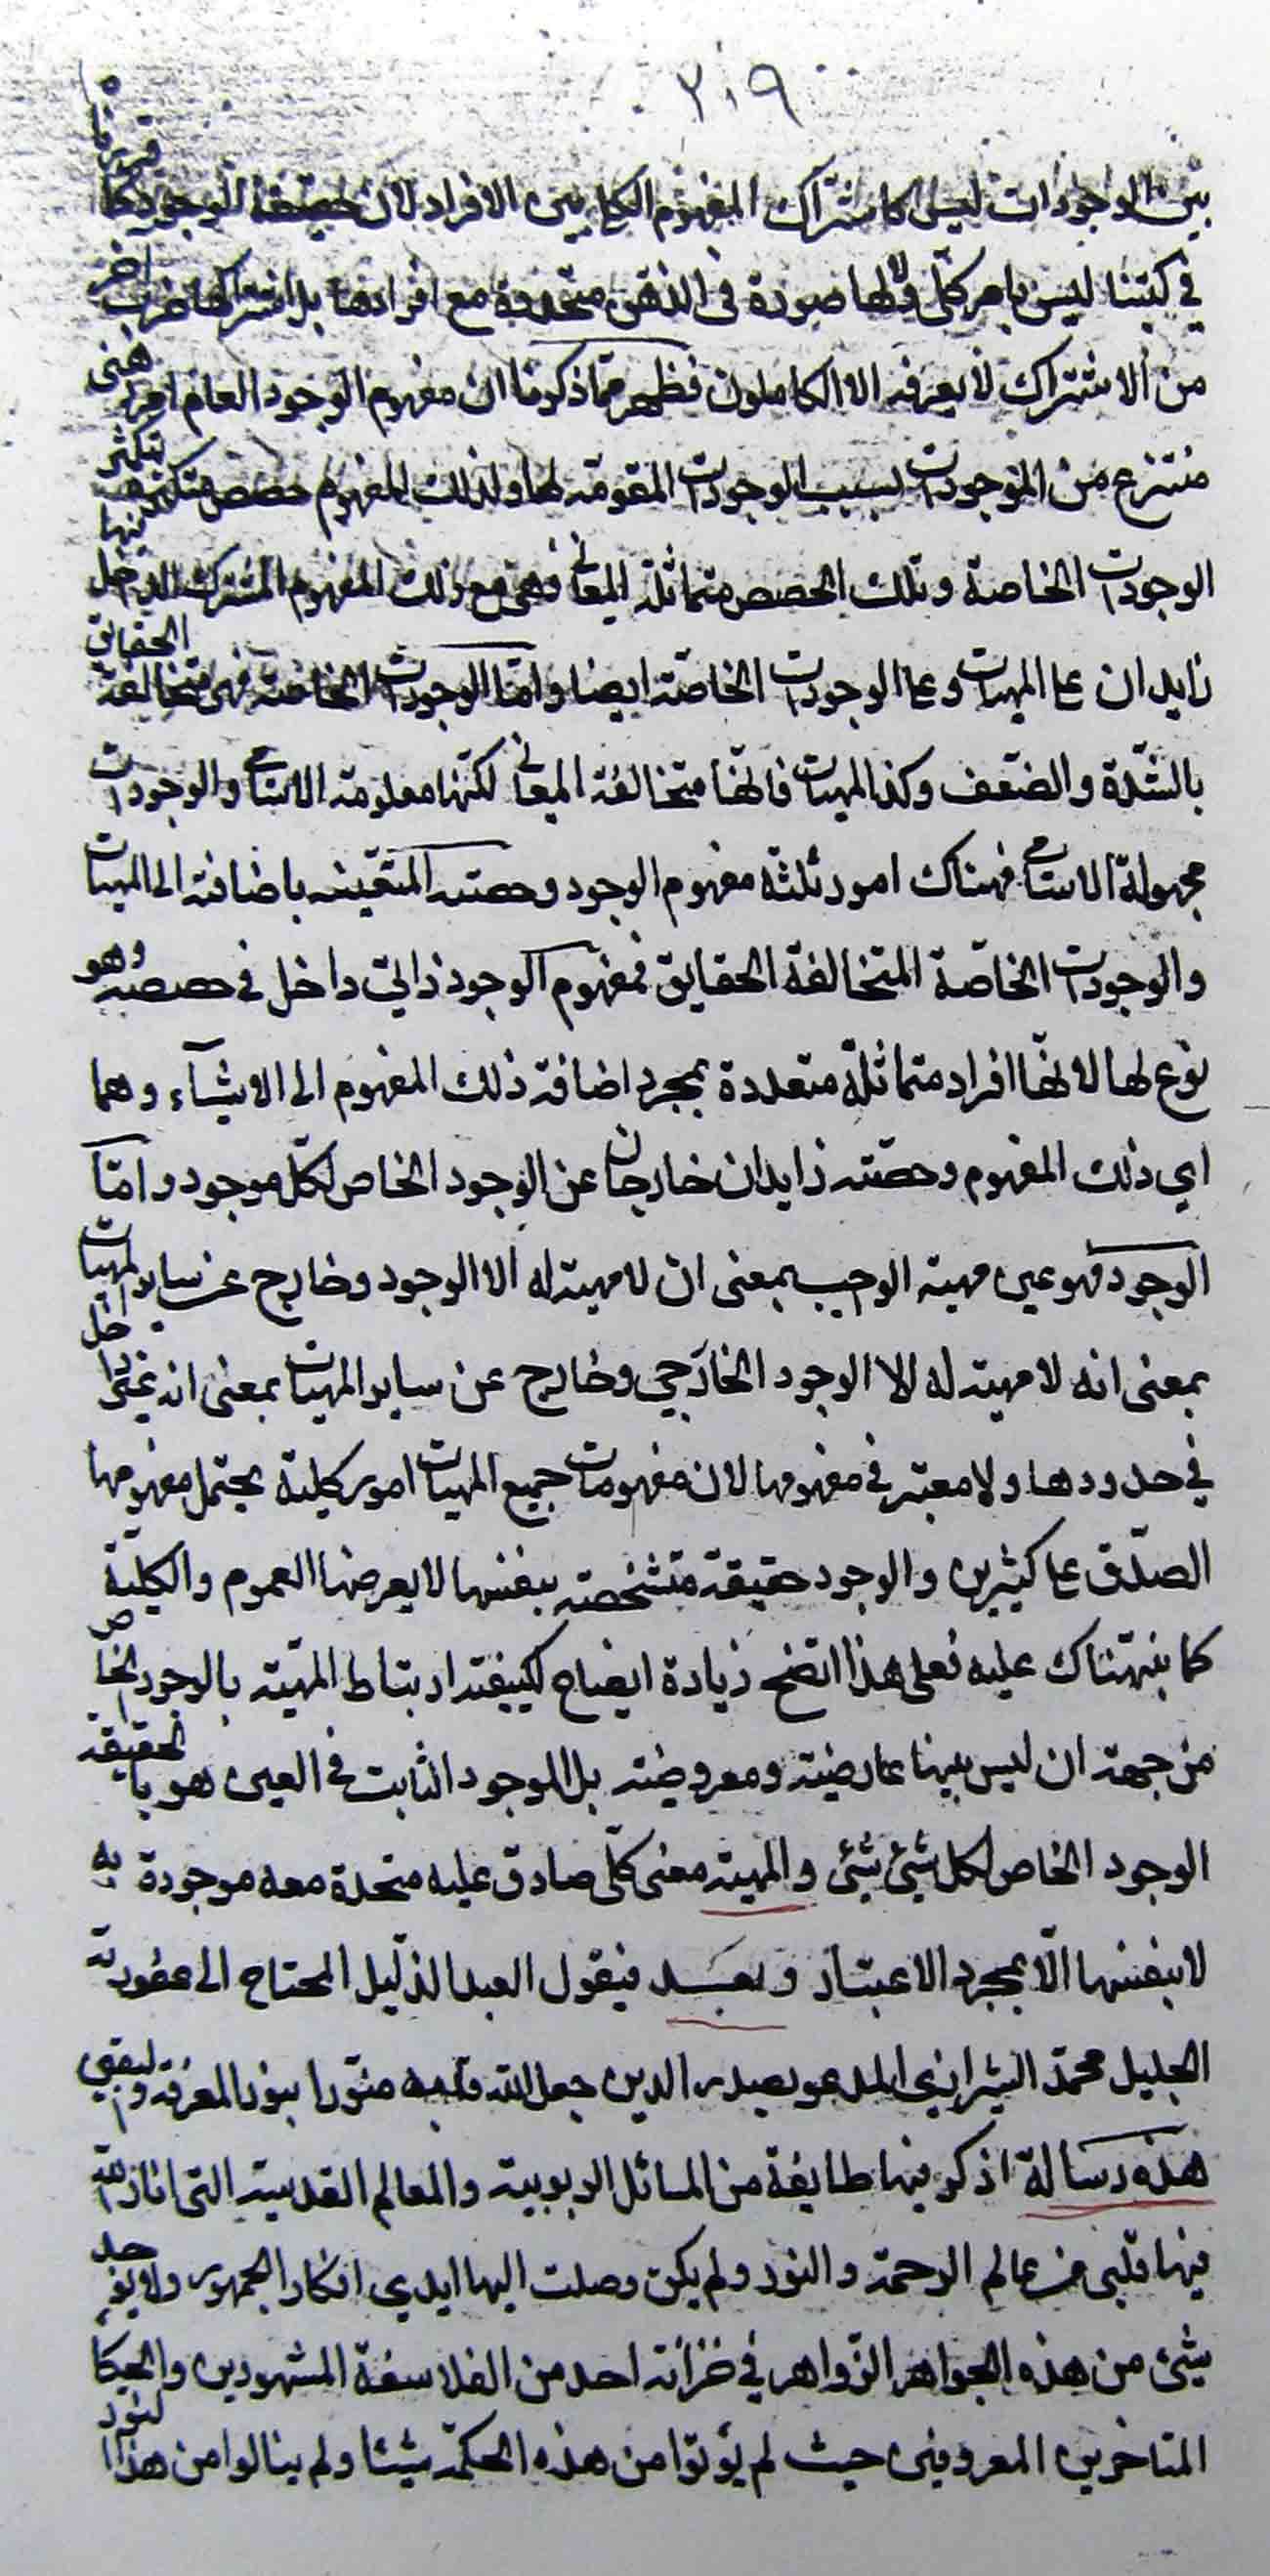 ٢٠٩
بين الوجودات ليس كاشتراك المفهوم الكلي بين الافراد لان حقيقة الوجود كما قررنا
في كتبنا ليس بامر كلي ولا لها صورة في الذهن متحدة مع افرادها بل اشتراكها ضرب اخر
من الاشتراك لا يعرفه الا الكاملون فظهر مما ذكرنا ان مفهوم الوجود العام امر ذهني
منتزع من الموجودات بسبب الوجودات المقومة لها ولذلك المفهوم حصص متكثرة بتكثر
الوجودات الخاصة وتلك الحصص متماثلة المعاني فهي مع ذلك المفهوم المشترك الداخل فيها
زايدان على المهيات وعلى الوجودات الخاصة ايضا واما الوجودات الخاصة فهي متخالفة الحقايق
بالشدة والضعف وكذا المهيات فانها متخالفة المعاني لكنها معلومة الاسامي والوجودات
مجهولة الاسامي فهناك امور ثلثة مفهوم الوجود وحصته المتعينه باضافته الى المهيات
والوجودات الخاصة المتخالفة الحقايق فمفهوم الوجود ذاتي داخل في حصصه وهو
نوع لها لانها افراد متماثلة متعددة بمجرد اضافة ذلك المفهوم الى الاشيآء وهما
اي ذلك المفهوم وحصته زايدان خارجان عن الوجود الخاص لكل موجود واما
الوجود فهو عين مهية الواجب بمعنى ان لا مهية له الا الوجود وخارج عن ساير المهيات
بمعنى انه لا مهية له الا الوجود الخارجي وخارج عن ساير المهيات بمعنى انه غير داخل
في حدودها ولا معتبر في مفهومها لان مفهومات جميع المهيات امور كلية يحتمل مفهومها
الصدق على كثيرين والوجود حقيقة متشخصة بنفسها لا يعرضها العموم والكلية
كما نبهناك عليه فعلى هذا اتضح زيادة ايضاح لكيفية ارتباط المهية بالوجود الخاص
من جهة ان ليس بينها عارضية ومعروضية بل الموجود الثابت في العين هو بالحقيقة
الوجود الخاص لكل شيئ شيئ والمهية معنى كلي صادق عليه متحدة معه موجودة به
لا بنفسها الا بمجرد الاعتبار وبعد فيقول العبد الذليل المحتاج الى عفو ربه
الجليل محمد الشيرازي المدعو بصدر الدين جعل الله قلبه منورا بنور المعرفة واليقين
هذه رسالة اذكر فيها طايفة من المسائل الربوبية والمعالم القدسية التي انار الله
فيها قلبي من عالم الرحمة والنور ولم يكن وصلت اليها ايدي افكار الجمهور ولا يوجد
شيئ من هذه الجواهر الزواهر في خزانة احد من الفلاسفة المشهورين والحكما
المتاخرين المعروفين حيث لم يؤتوا من هذه الحكمة شيئا ولم ينالوا من هذا النور